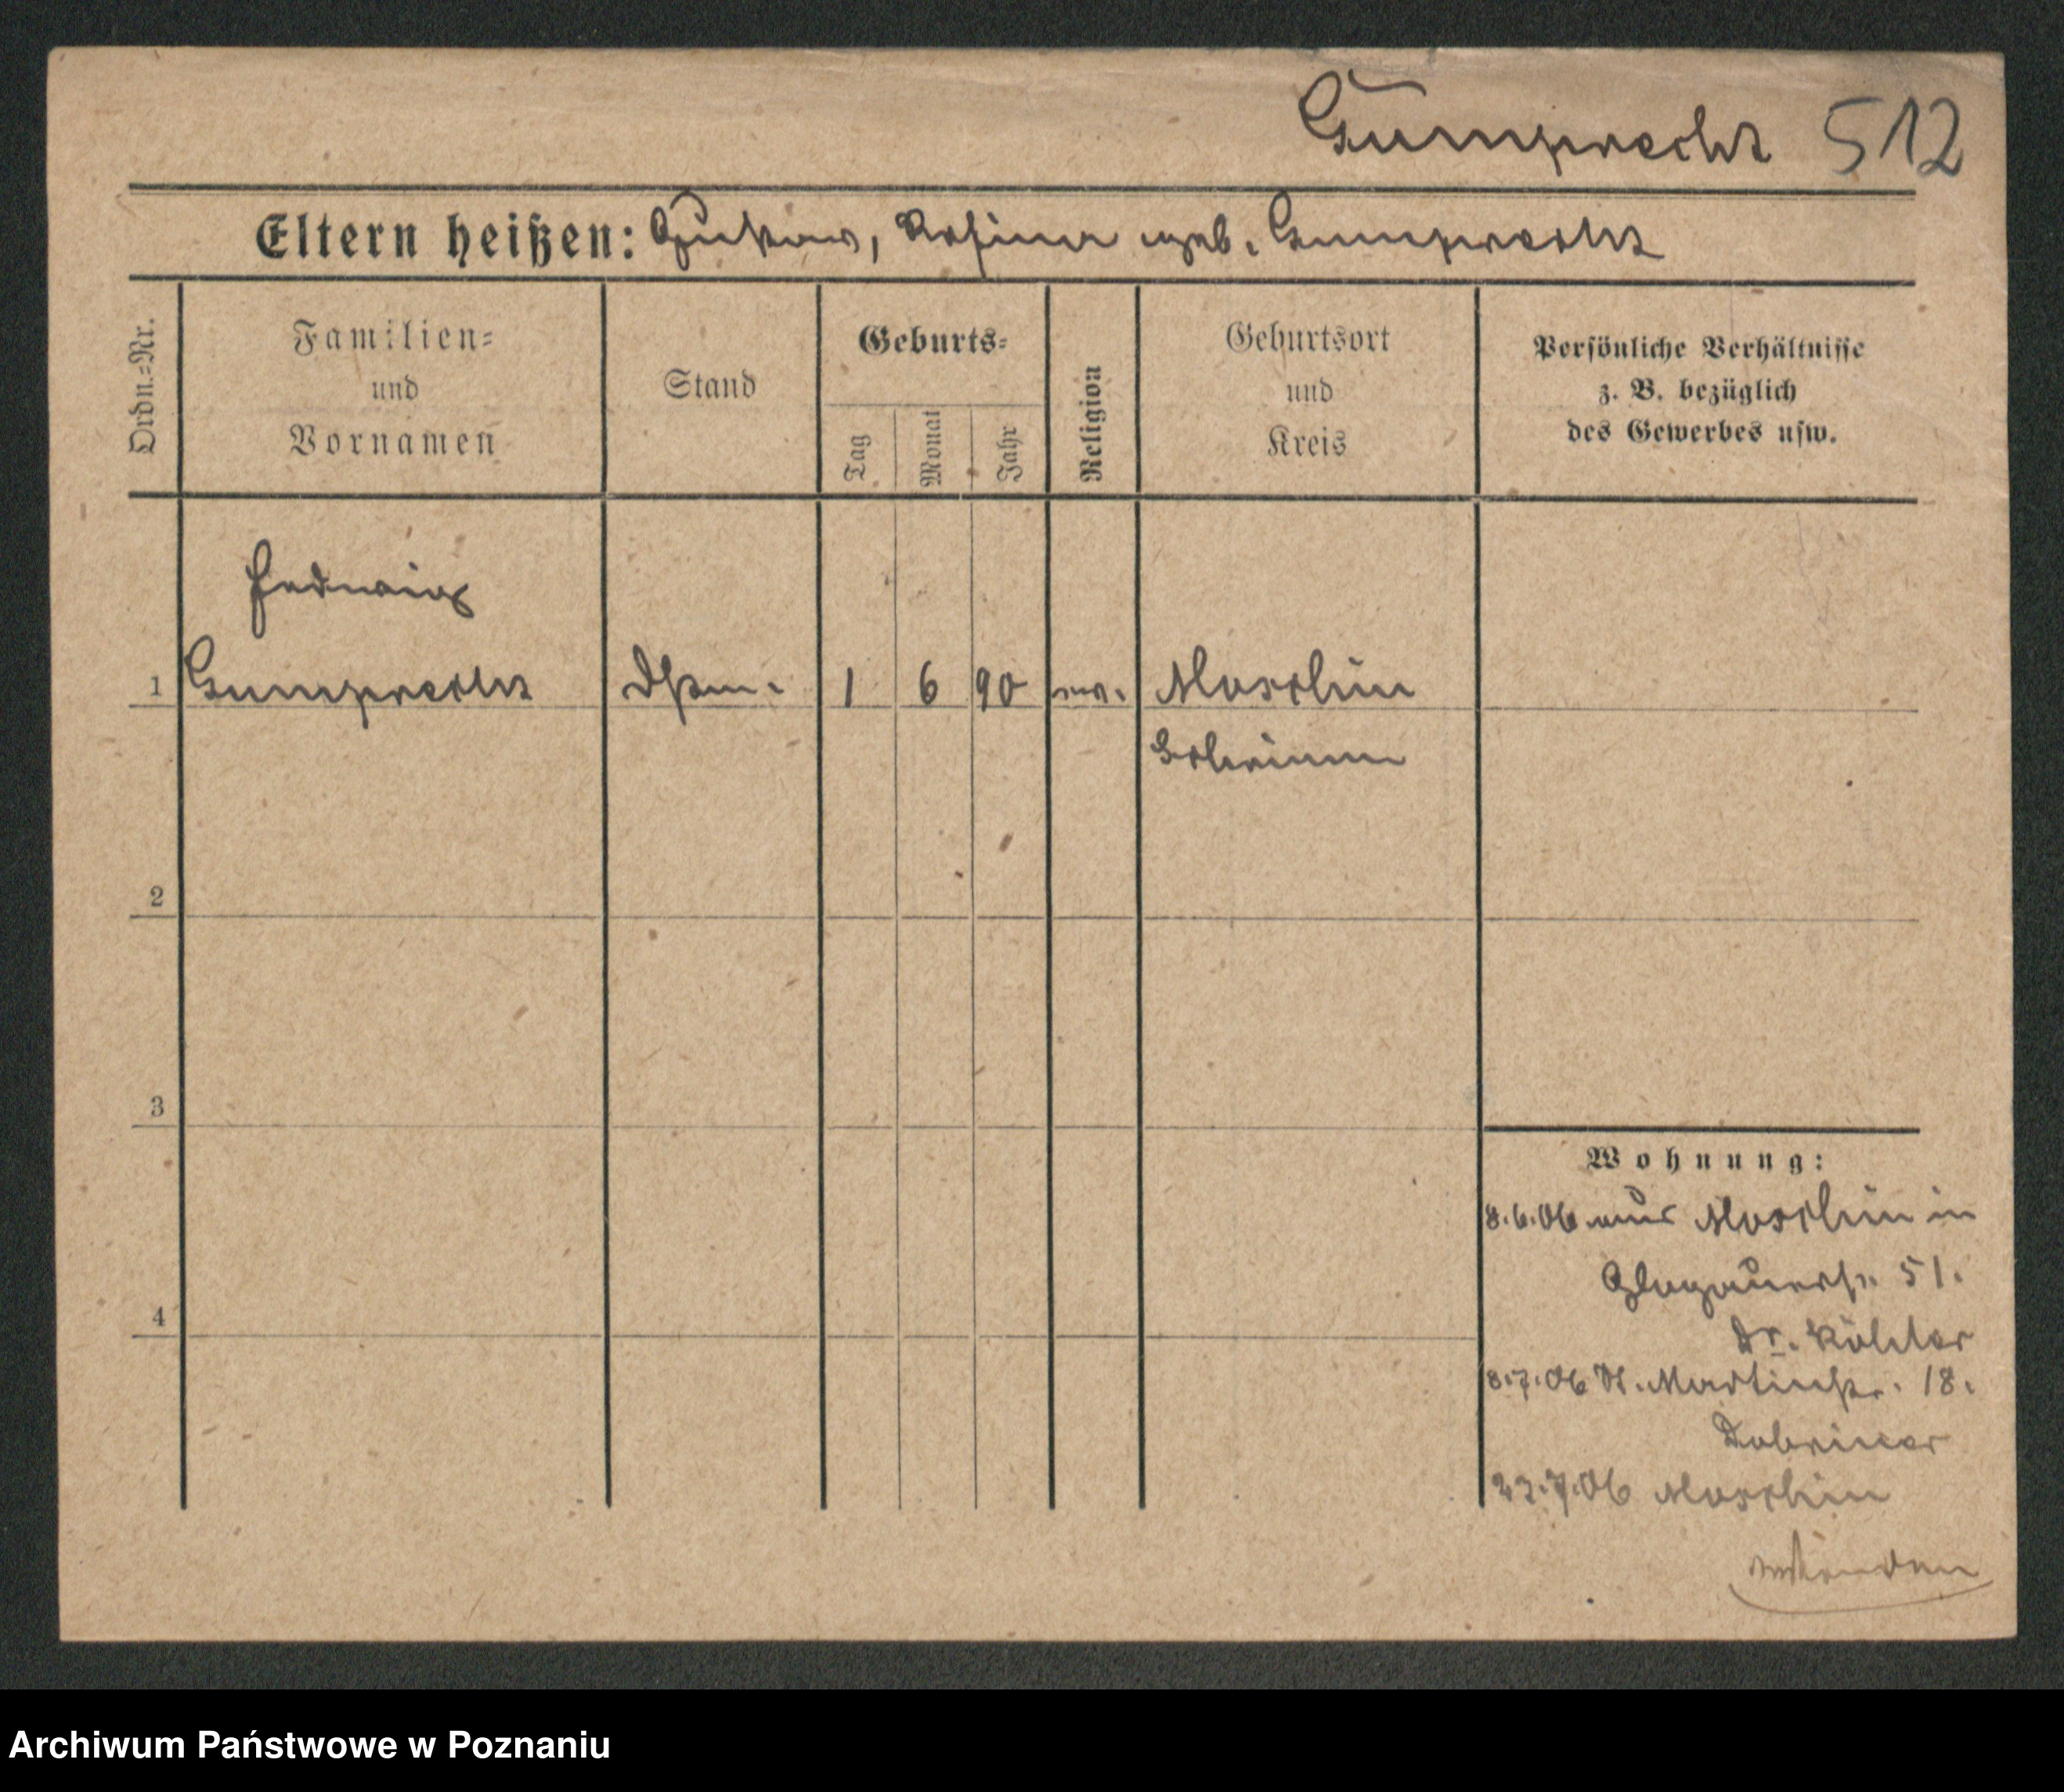 Gumprecht 512
Eltern heißen: Gustav, Rosina geb. Gumprecht
Ordn.-Nr.
Familien-
und
Vornamen
Stand
Geburts-
Tag
Monat
Jahr
Religion
Geburtsort
und
Kreis
Persönliche Verhältnisse
z. B. bezüglich
des Gewerbes usw.
Hedwig
1 Gumprecht Dstm. 1 6 90 ev. Moschin
Schrimm
2
3
4
Wohnung:
8.6.06 aus Moschin in
Glogauerstr. 51.
Dr. Köhler
8.7.06 St. Martinstr. 18.
23.7.06 Moschin
Archiwum Państwowe w Poznaniu